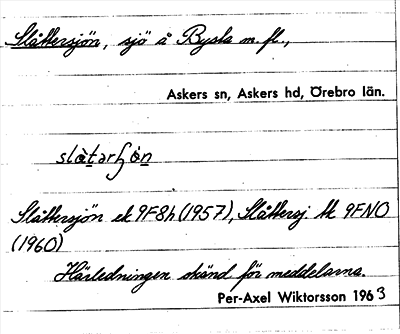 Slåttersjön, sjö å Bysta m. fl.,
Askers sn, Askers hd, Örebro län.
slåtərʃö̀n
Slåttersjön ek 9F8h (1957), Slåttersj. tk 9FNO
(1960)
Härledningen okänd för meddelarna.
Per-Axel Wiktorsson 1963